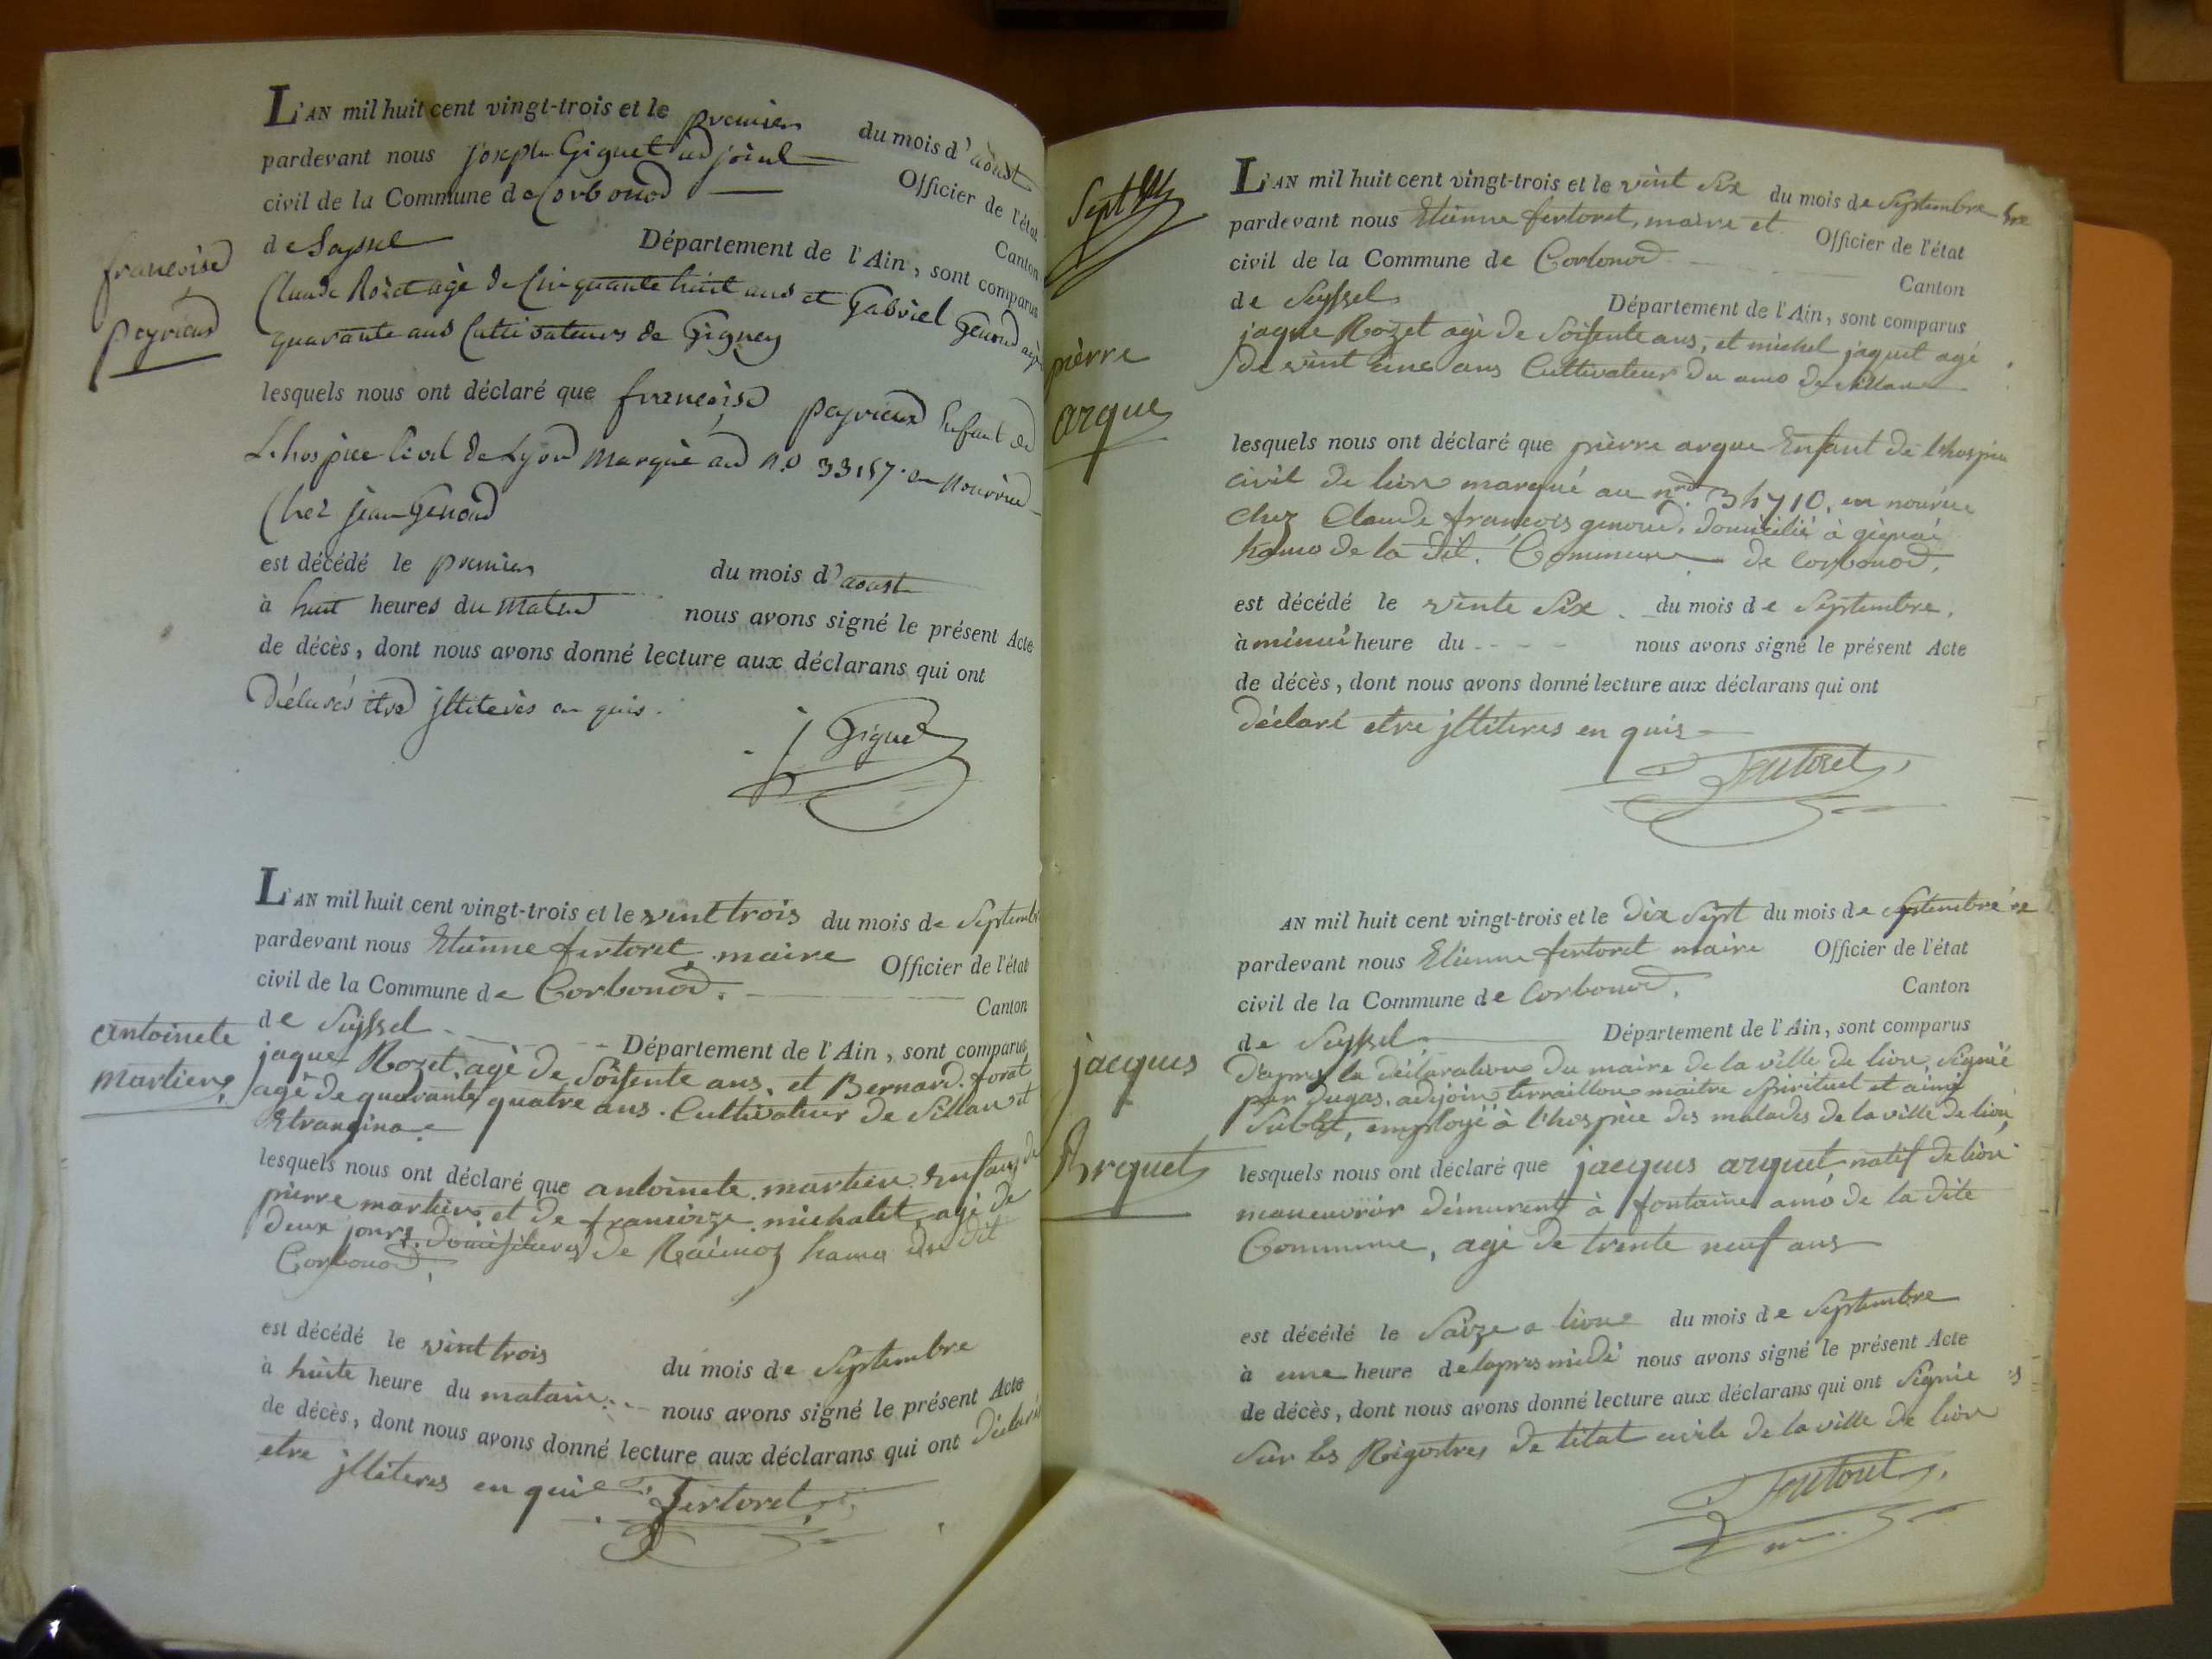 L'AN mil huit cent vingt-trois et le premier du mois d'aoust
pardevant nous joseph Giguet adjoint Officier de l'état
civil de la Commune de Corbonod Canton
de Seyssel Département de l'Ain, sont comparus
Claude Rozet agé de Cinquante huit ans et Gabriel Genoud agé
quarante ans Cultivateurs de Gigney
francoise
peyrieux
lesquels nous ont déclaré que francoise peyrieux Enfant de
L'hospice Civil de Lyon Marqué au n.o 33157 en Nourrice
Chez jean Genoud
est décédé le premier du mois d'aoust
à huit heures du Matin nous avons signé le présent Acte
de décès, dont nous avons donné lecture aux déclarans qui ont
Déclarés être jlliterés en quis.
j Giguet
L'AN mil huit cent vingt-trois et le vint trois du mois de Septembre
pardevant nous Etienne fertoret maire Officier de l'état
civil de la Commune de Corbonod. Canton
de Seyssel Département de l'Ain, sont comparus
antoinete
martien
jaque Rozet, agé de Soisente ans, et Bernard forat
agé de quarante quatre ans. Cultivateur de Sillan et
Etrangina
lesquels nous ont déclaré que antoinete martien Enfant de
pierre martien et de francoize michalet, agé de
deux jours, de Raimoz hamo du dit
Corbonod,
est décédé le vint trois du mois de Septembre
à huite heure du matain nous avons signé le présent Acte
de décès, dont nous avons donné lecture aux déclarans qui ont déclaré
etre jlliteres en quis
fertoret
Sept
L'AN mil huit cent vingt-trois et le vint six du mois de Septembre bre
pardevant nous Etienne fertoret, maire et Officier de l'état
civil de la Commune de Corbonod Canton
de Seyssel Département de l'Ain, sont comparus
jaque Rozet agé de Soisente ans, et michel jaquet agé
de vint cinc ans Cultivateur du amo de Sillan
pièrre
argue
lesquels nous ont déclaré que pièrre argue Enfant de l'hospice
civil de lion marqué au nro 34710, en nourice
chez Claude francois genoud, domicilié à gignai
hamo de la dit. Commune de Corbonod,
est décédé le vente six du mois de Septembre,
à minui heure du - - - - nous avons signé le présent Acte
de décès, dont nous avons donné lecture aux déclarans qui ont
déclaré etre jlliteres en quis
fertoret
AN mil huit cent vingt-trois et le dix sept du mois de Septembre re
pardevant nous Etienne fertoret maire Officier de l'état
civil de la Commune de Corbonod, Canton
de Seyssel Département de l'Ain, sont comparus
d'apres la déclaration du maire de la ville de lion, signié
par dugas, adijoin, terraillon maitre spirituel et aimé
Sublet, employé à l'hospice des malades de la ville de lion,
jacques
Arquet
lesquels nous ont déclaré que jacques arquet natif de lion
maneuvrir démurent à fontaine amo de la dite
Commune, agé de trente neuf ans
est décédé le Saize a lion du mois de Septembre
à une heure de lapres midi nous avons signé le présent Acte
de décès, dont nous avons donné lecture aux déclarans qui ont signié
sur les Régistres de létat civile de la ville de lion
fertoret